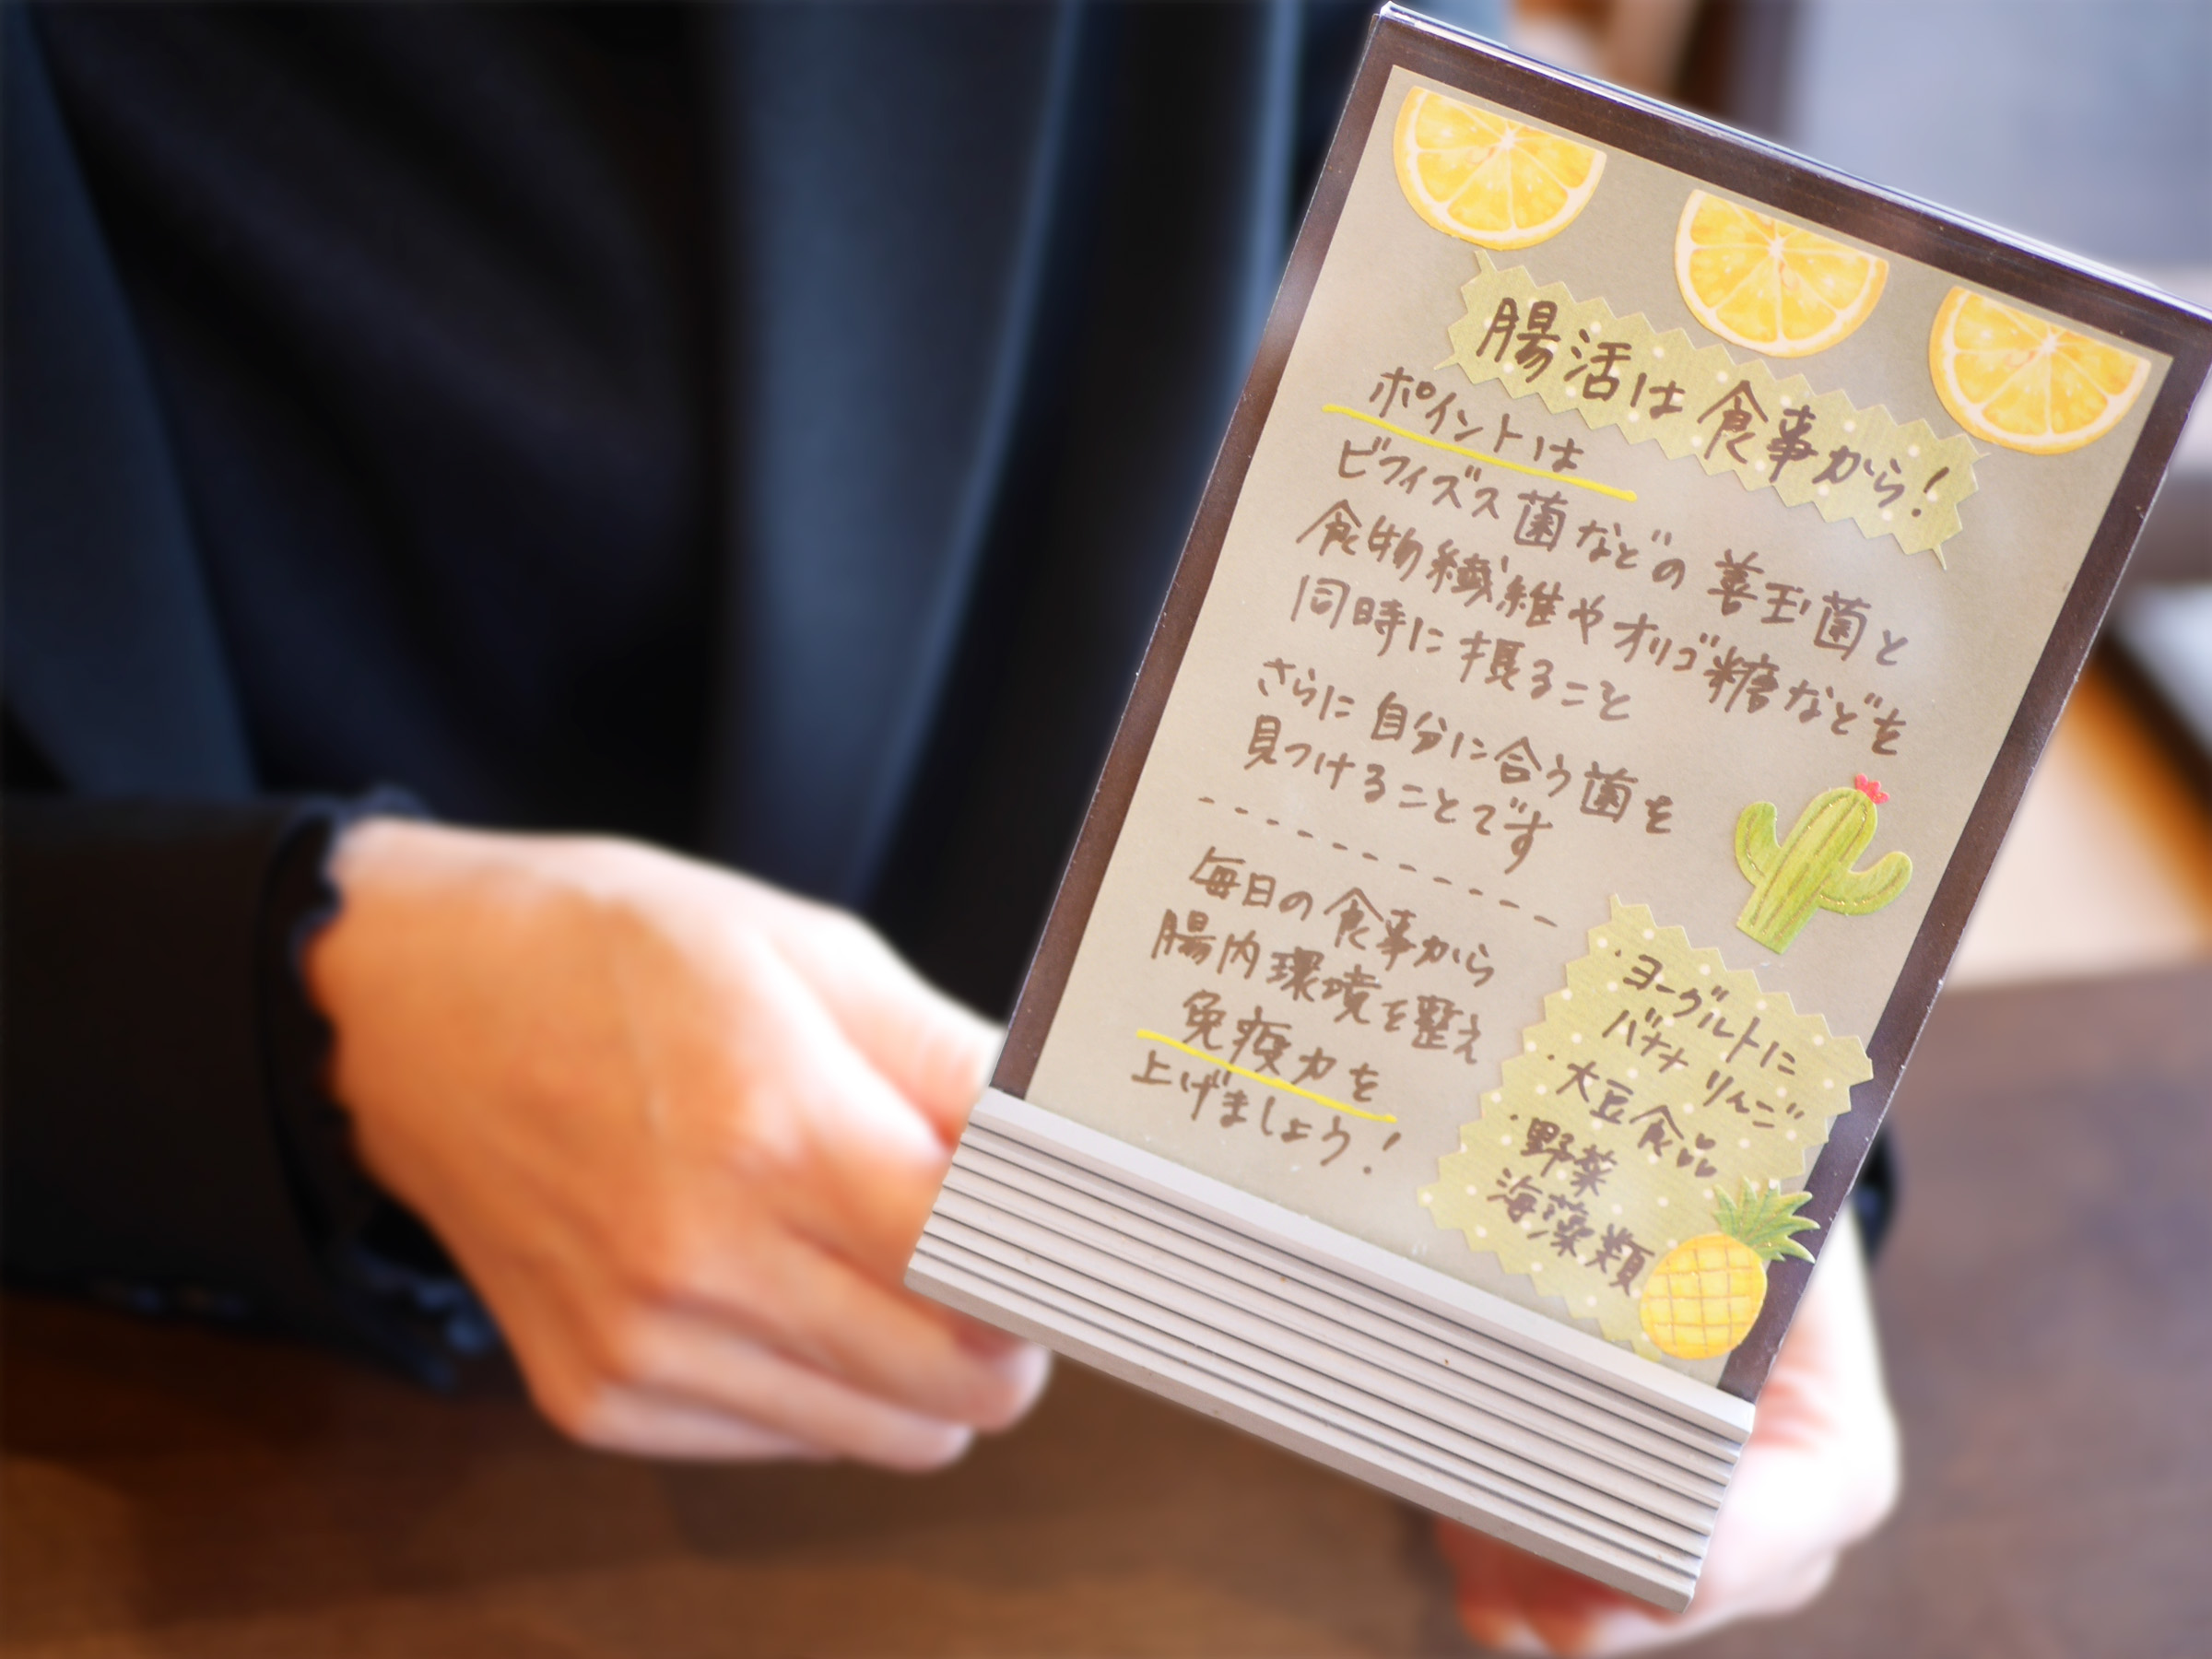 腸活は食事から!
ポイントは
ビフィズス菌などの善玉菌と
食物繊維やオリゴ糖などを
同時に摂ること
さらに自分に合う菌を
見つけることです
毎日の食事から
腸内環境を整え
免疫力を
上げましょう!
・ヨーグルトに
バナナ りんご
・大豆食品
・野菜
海藻類